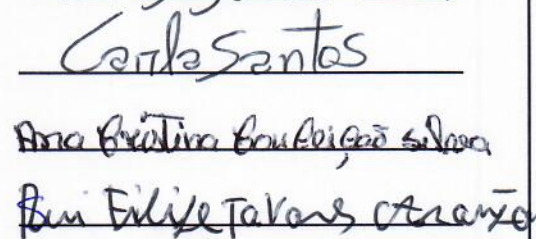 Carla Santos
Ana Cristina Conceição Silva
Rui Filipe Tavares Aranjo